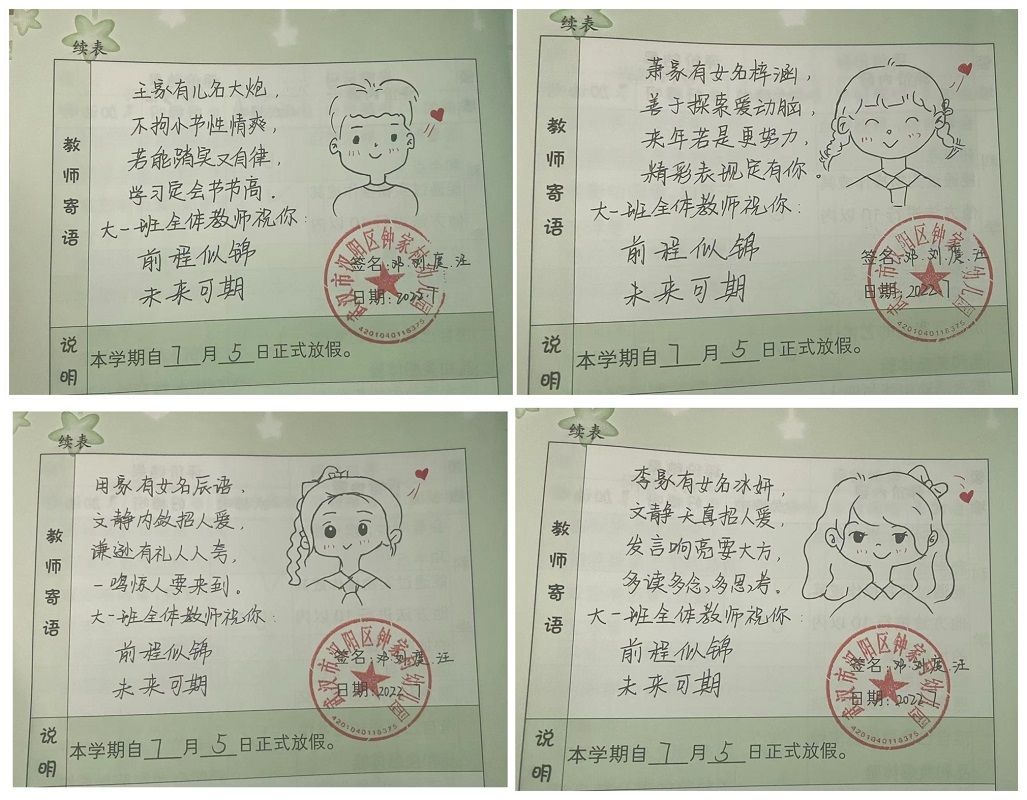 续表
教师寄语
主家有儿名大炮，
不拘小节性情爽，
若能踏实又自律，
学习定会节节高．
大一班全体教师祝你：
前程似锦
未来可期
签名：邓.刘.庹.汪
日期：2022.7
武汉市汉阳区钟家村幼儿园
4201040118375
说明
本学期自7月5日正式放假。
续表
教师寄语
萧家有女名梓涵，
善于探索爱动脑，
来年若是更努力，
精彩表现定有你。
大一班全体教师祝你：
前程似锦
未来可期
签名：邓.刘.庹.汪
日期：2022.7
武汉市汉阳区钟家村幼儿园
4201040118375
说明
本学期自7月5日正式放假。
续表
教师寄语
田家有女名辰语，
文静内敛招人爱，
谦逊有礼人人夸，
一鸣惊人要来到。
大一班全体教师祝你：
前程似锦
未来可期
签名：邓.刘.庹.汪
日期：2022.7
武汉市汉阳区钟家村幼儿园
4201040118375
说明
本学期自7月5日正式放假。
续表
教师寄语
李家有女名冰妍，
文静天真招人爱，
发言响亮要大方，
多读多念、多思考．
大一班全体教师祝你：
前程似锦
未来可期
签名：邓.刘.庹.汪
日期：2022.7
武汉市汉阳区钟家村幼儿园
4201040118375
说明
本学期自7月5日正式放假。